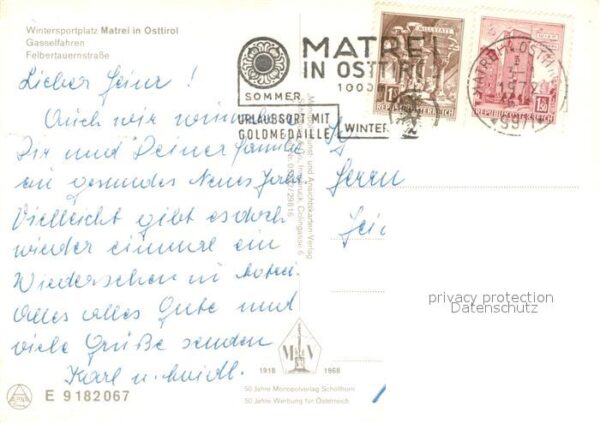 Wintersportplatz Matrei in Osttirol
Gasselfahren
Felbertauernstraße
Lieber Heinz!
Auch wir wünschen
Dir und Deiner Familie
ein gesundes Neues Jahr.
Vielleicht gibt es doch
wieder einmal ein
Wiedersehen in
Alles alles Gute und
viele Grüße senden
Karl u.
E 9182067
SOMMER
URLAUBSORT MIT
GOLDMEDAILLE
WINTER
MATREI
IN OSTTIROL
1000
MILLSTATT
REPUBLIK ÖSTERREICH
REPUBLIK ÖSTERREICH
MATREI OSTTIROL
9971
Herrn
privacy protection
Datenschutz
1918 M V 1968
50 Jahre Monopolverlag Schöllhorn
50 Jahre Werbung für Österreich